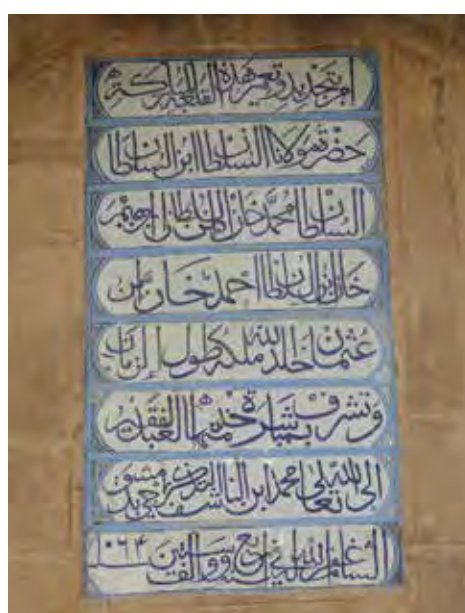 امر بتجديد وتعمير هذه القلعة المباركة
حضرة مولانا السلطان ابن السلطان
السلطان محمد خان ابن السلطان ابراهيم
خان ابن السلطان احمد خان بن
عثمان خلد الله ملكه طول الزمان
وتشرف بمباشرة خدمتها العبد الفقير
الى الله تعالى محمد ابن الناشف
غفر الله له في اربع وستين والف سنة ١٠٦٤